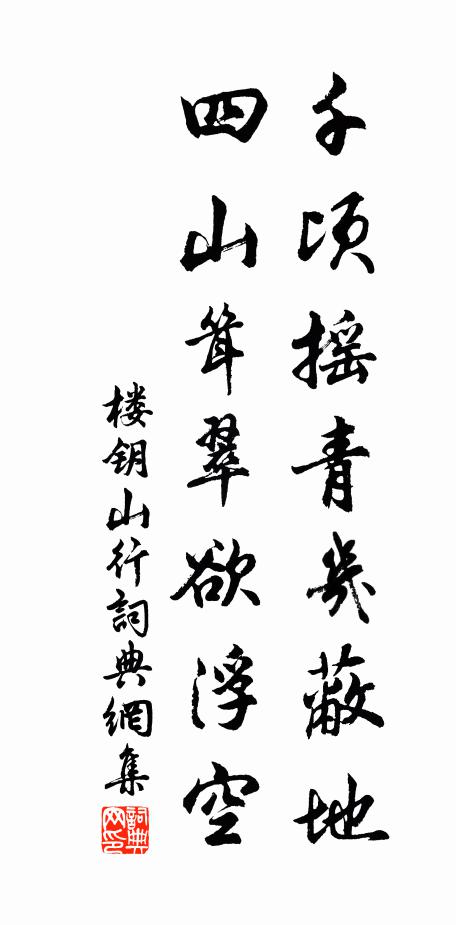 千顷摇青岁蔽地
四山耸翠欲浮空
楼钥山行詞典網集
詞典网印